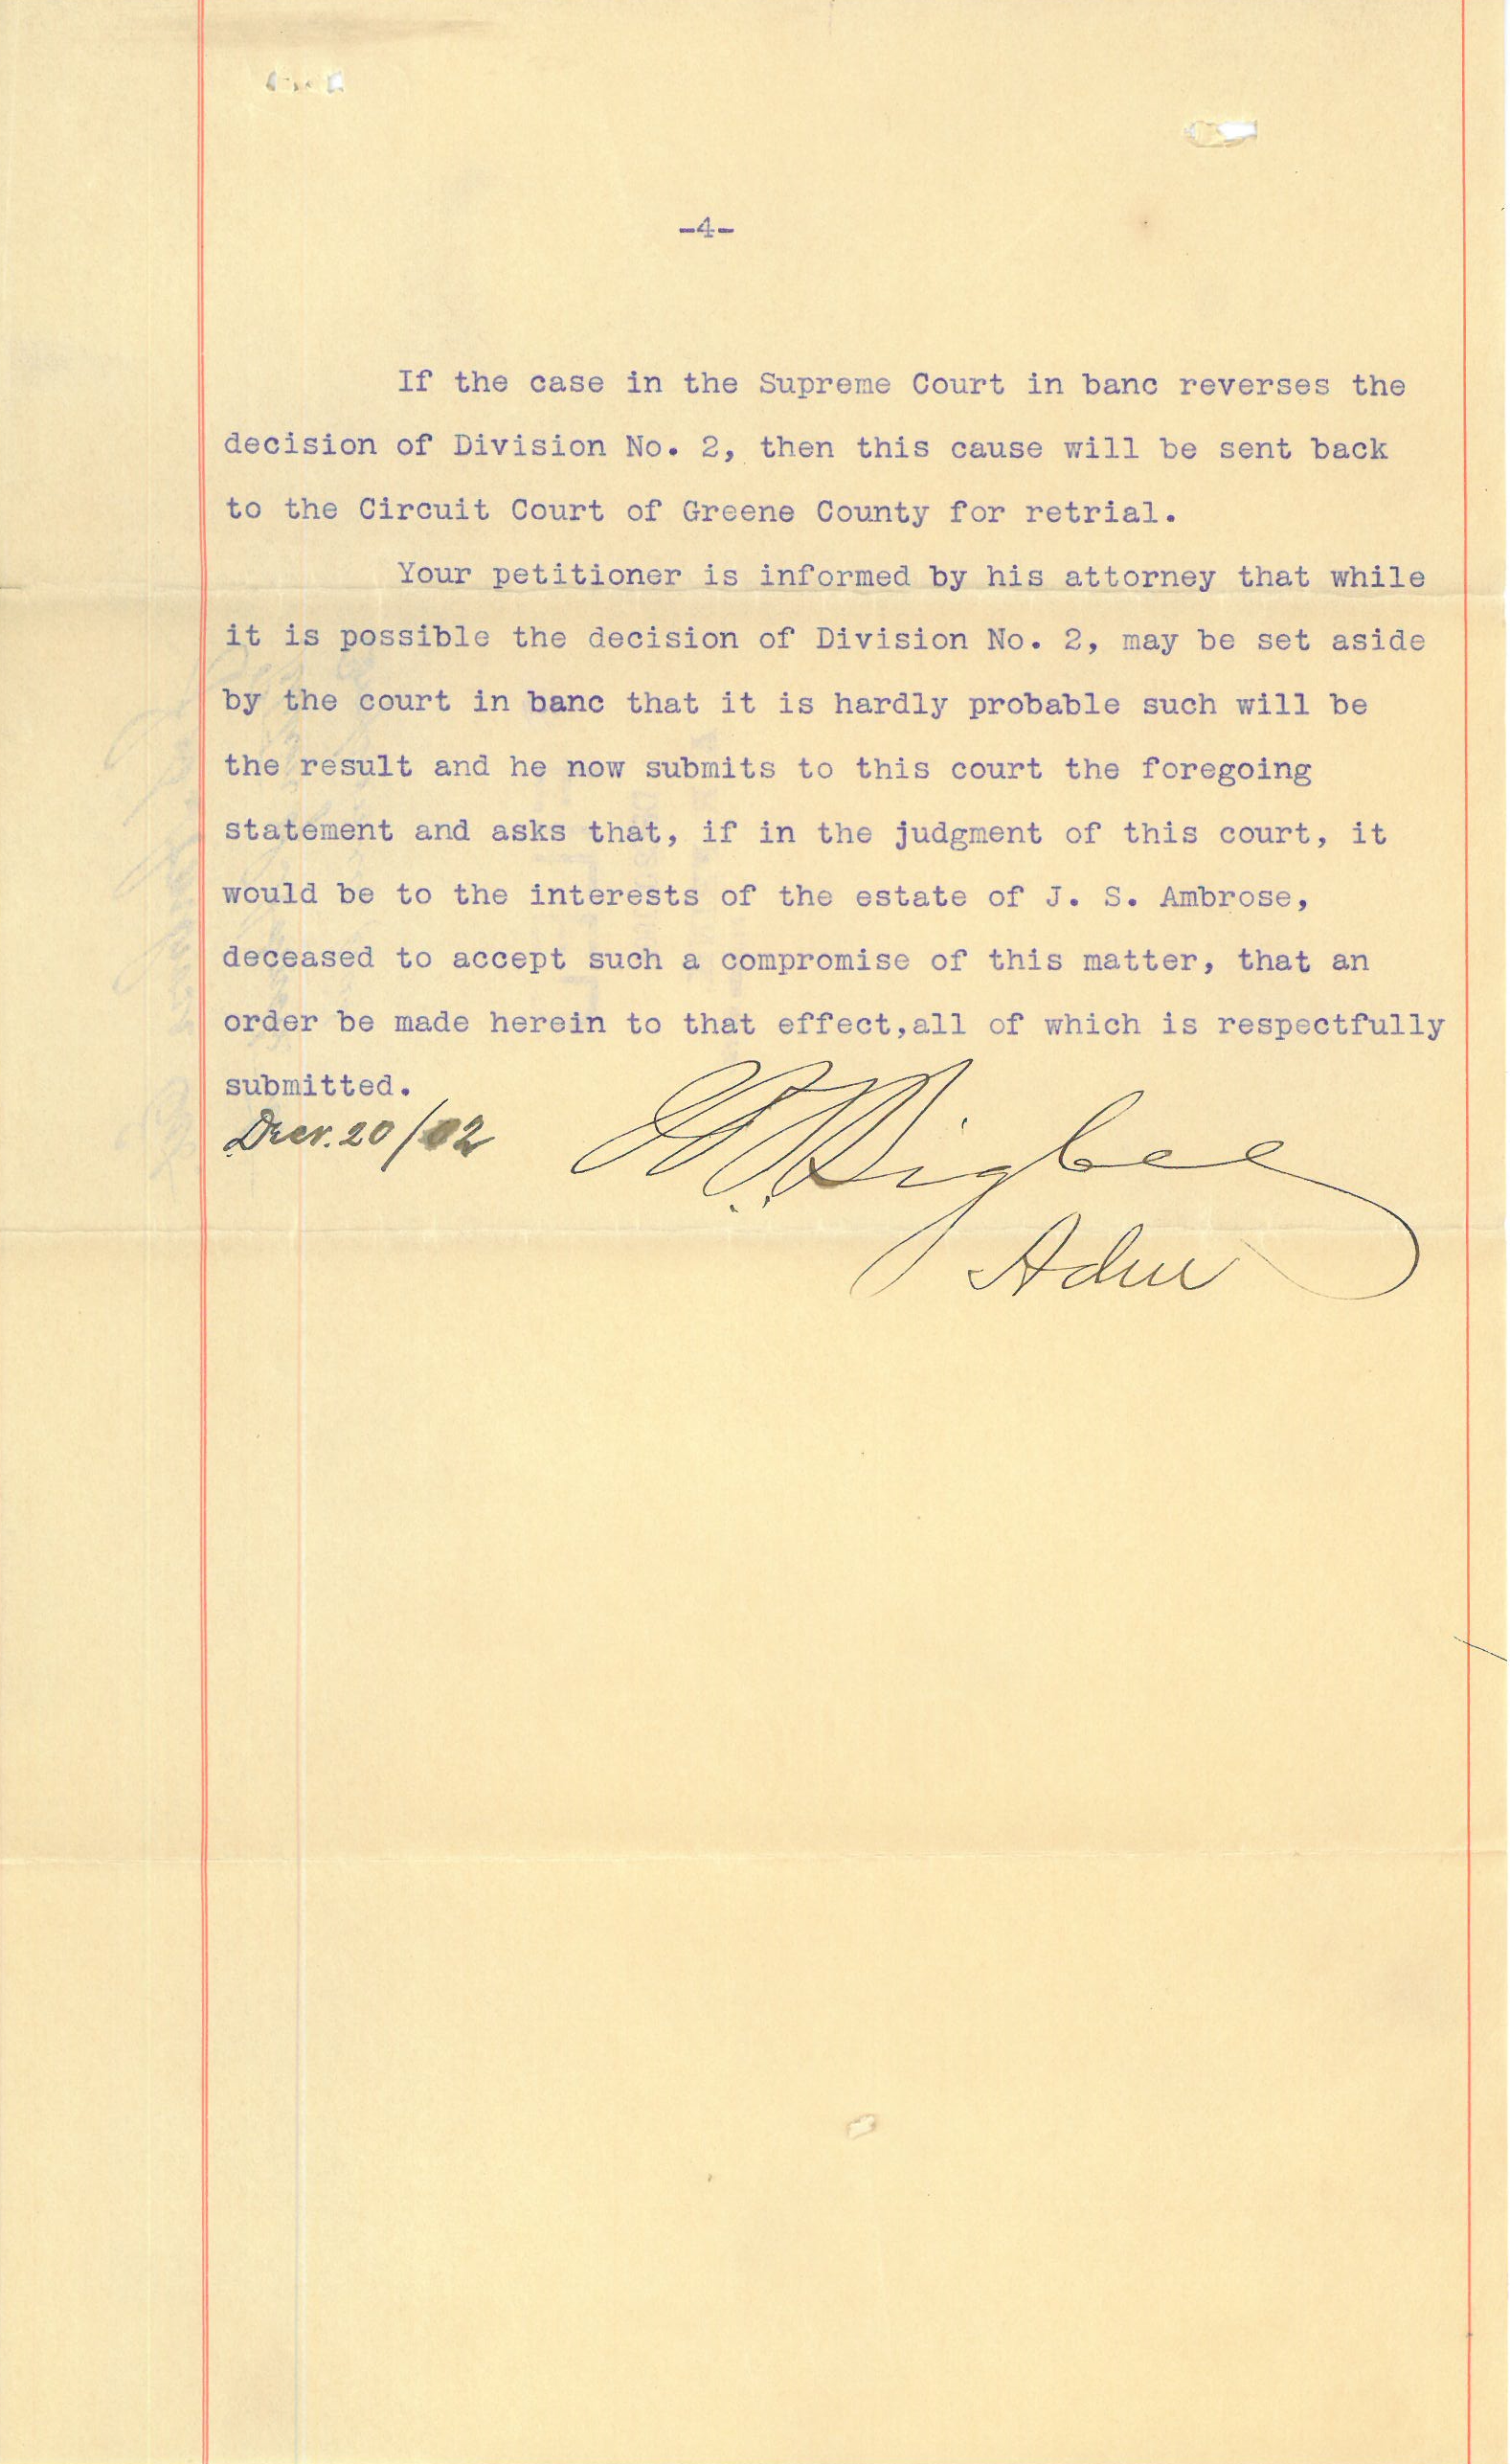 -4-
If the case in the Supreme Court in banc reverses the
decision of Division No. 2, then this cause will be sent back
to the Circuit Court of Greene County for retrial.
Your petitioner is informed by his attorney that while
it is possible the decision of Division No. 2, may be set aside
by the court in banc that it is hardly probable such will be
the result and he now submits to this court the foregoing
statement and asks that, if in the judgment of this court, it
would be to the interests of the estate of J. S. Ambrose,
deceased to accept such a compromise of this matter, that an
order be made herein to that effect,all of which is respectfully
submitted.
20/02
Adm